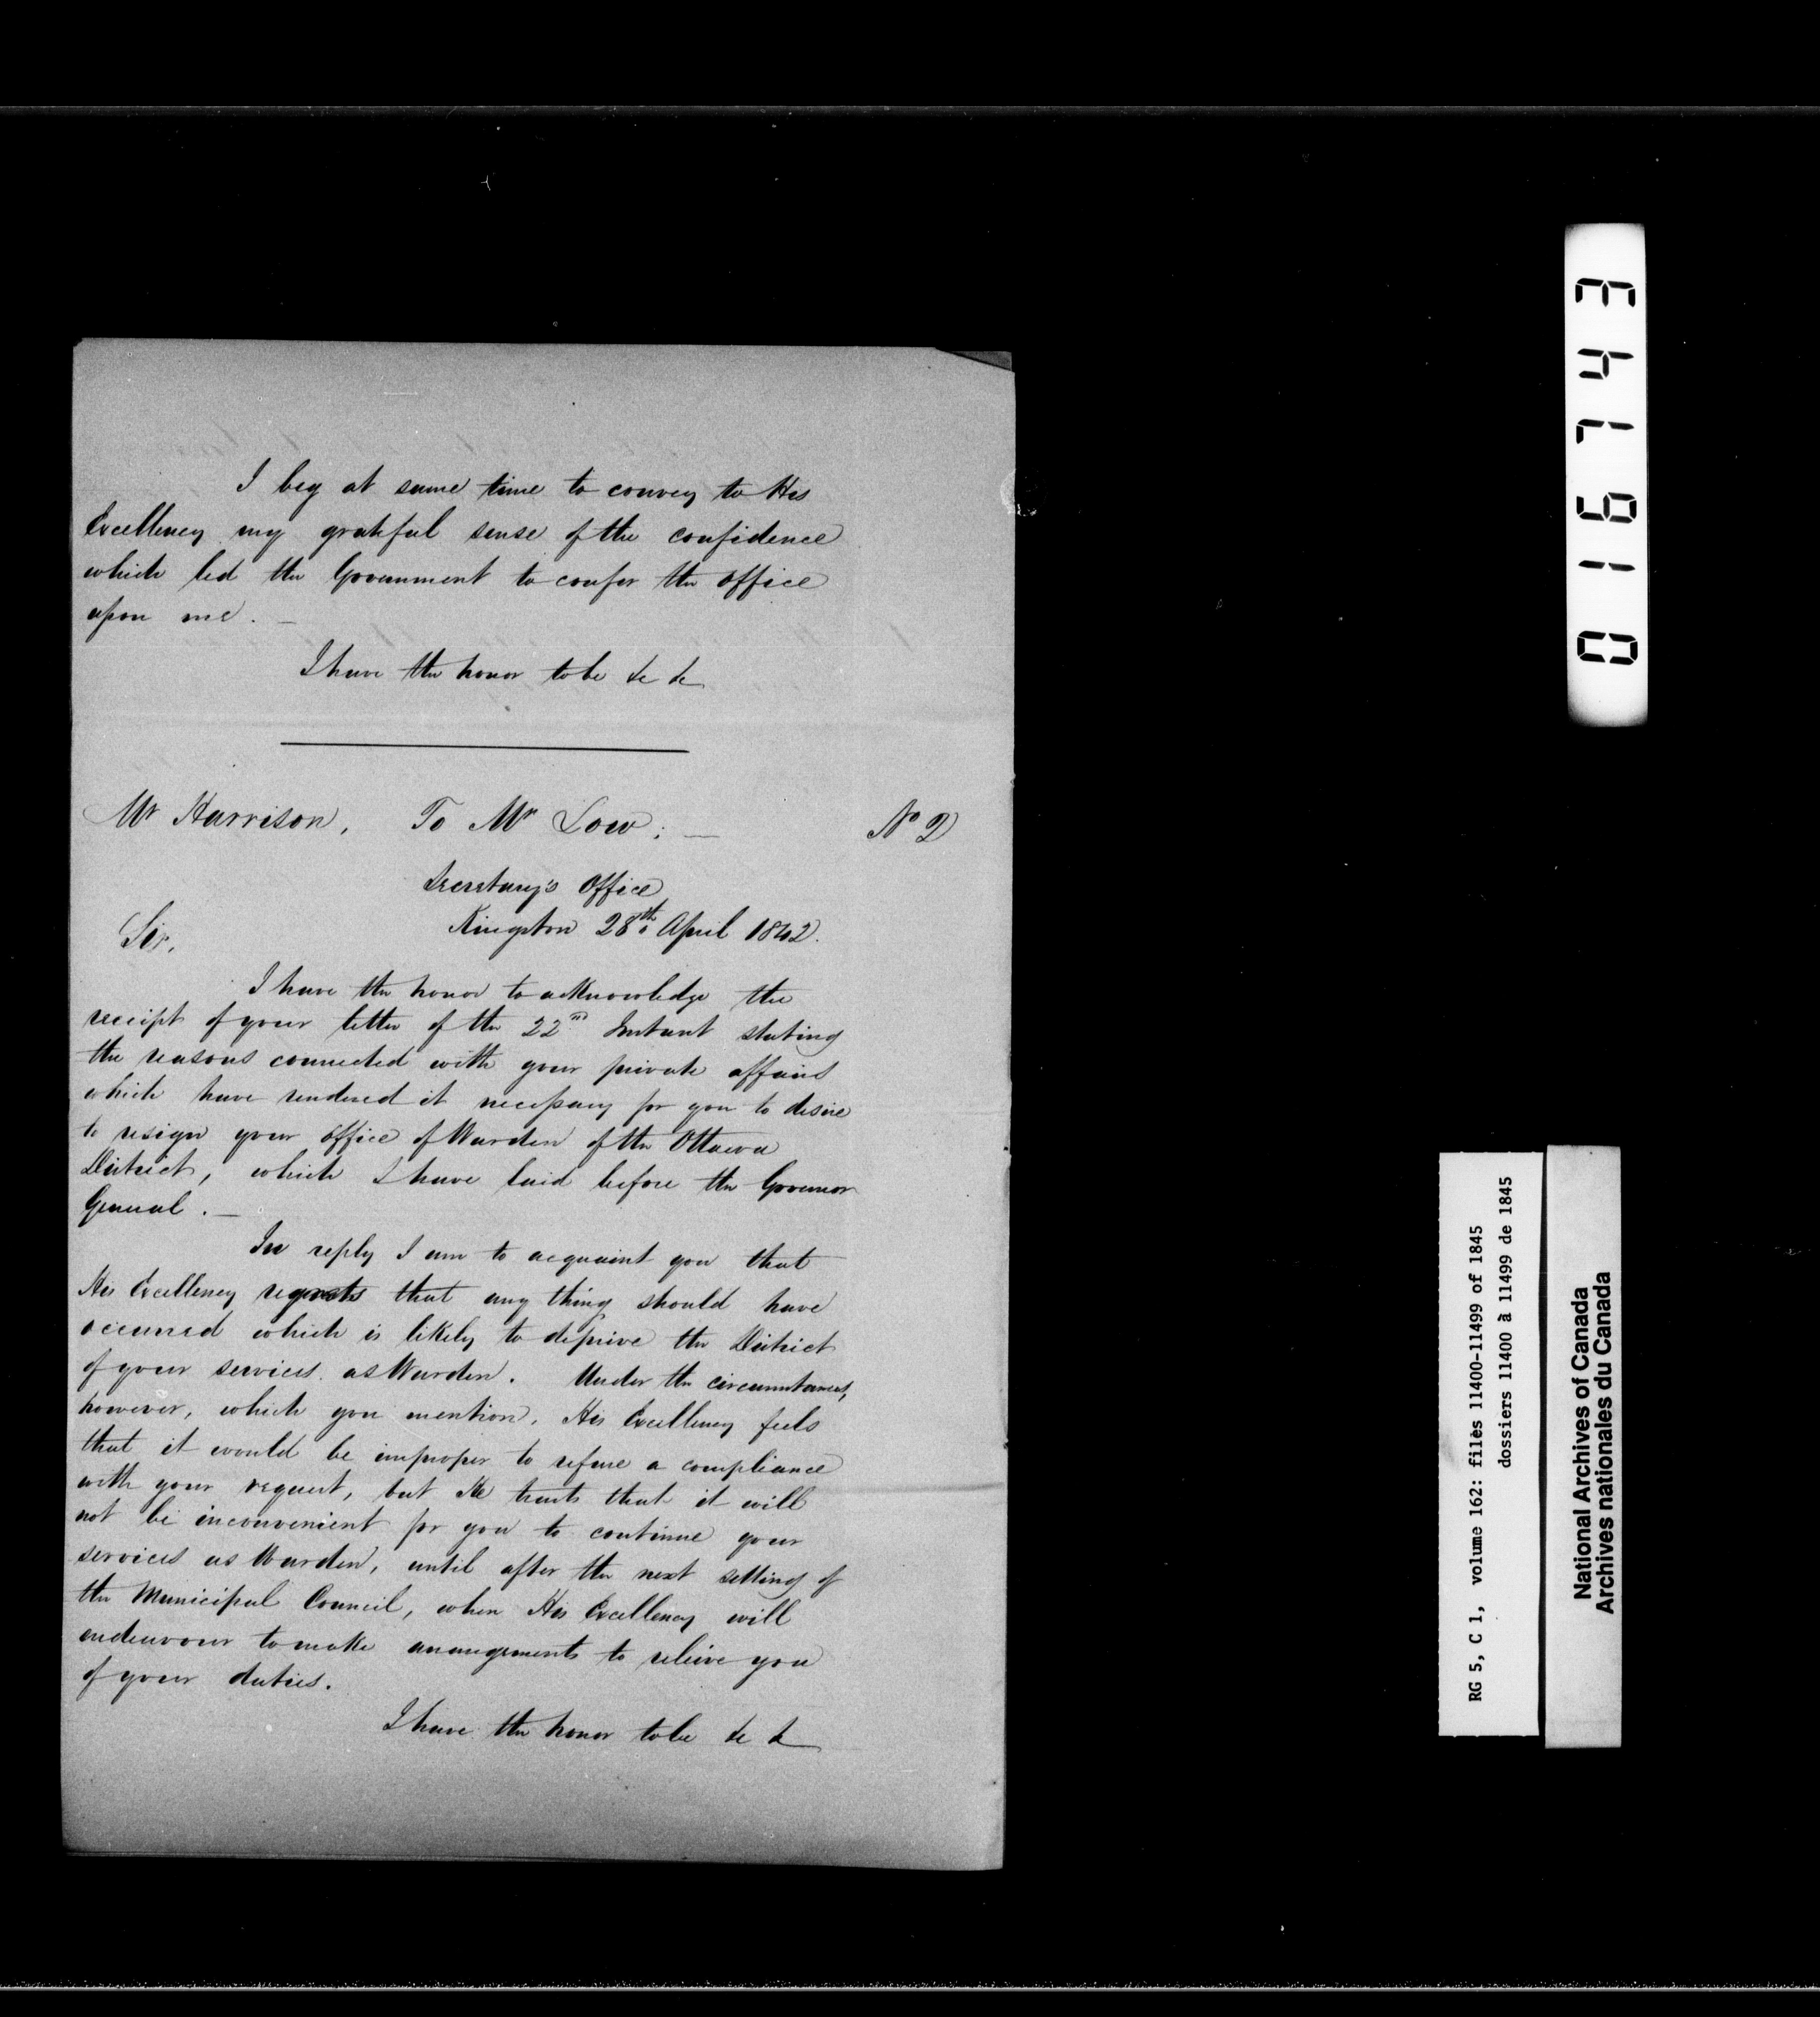 I beg at same time to convey to His
Excellency my grateful sense of the confidence
which led the Government to confer the office
upon me. —
I have the honor to be &c &c
Mr Harrison, To Mr Low; —
No 2
Secretary's Office
Kingston 28th April 1842.
Sir,
I have the honor to acknowledge the
receipt of your letter of the 22nd Instant stating
the reasons connected with your private affairs
which have rendered it necessary for you to desire
to resign your office of Warden of the Ottawa
District, which I have laid before the Governor
General. —
In reply I am to acquaint you that
His Excellency regrets that any thing should have
occurred which is likely to deprive the District
of your services as Warden. Under the circumstances,
however, which you mention, His Excellency feels
that it would be improper to refuse a compliance
with your request, but He trusts that it will
not be inconvenient for you to continue your
services as Warden, until after the next sitting of
the Municipal Council, when His Excellency will
endeavour to make arrangements to relieve you
of your duties.
I have the honor to be &c &c
016743
RG 5, C 1, volume 162: files 11400-11499 of 1845
dossiers 11400 à 11499 de 1845
National Archives of Canada
Archives nationales du Canada